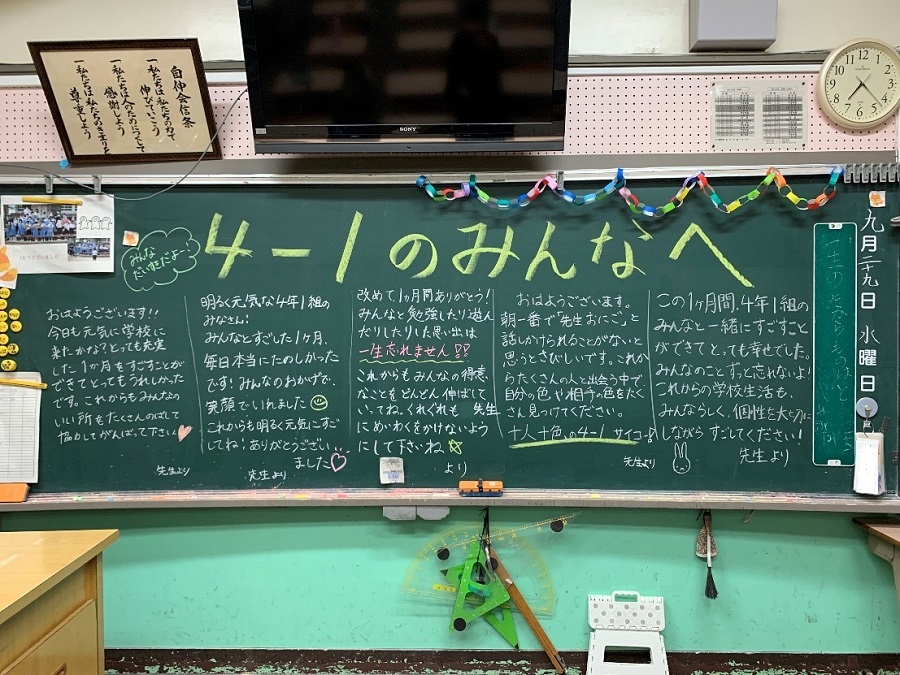 自伸会信条
一、私たちは私たちの力で
伸びていこう
一、私たちは人のためにつくして
感謝しよう
一、私たちは私たちのきまりを
尊重しよう
SONY
4-1のみんなへ
みんな
だいすきだよー!
おはようございます!!
今日も元気に学校に
来たかな?とっても充実
した1か月をすごすことが
できてとってもうれしかった
です。これからもみんなの
いい所をたくさんのばして
協力してがんばって下さい
先生より
明るく元気な4年1組の
みなさん!
みんなとすごした1ヶ月、
毎日本当にたのしかった
です!みんなのおかげで、
笑顔でいれました
これからも明るく元気にすご
してね!ありがとうござい
ました
先生より
改めて、1ヶ月間ありがとう!
みんなと勉強したり遊ん
だりしたりした思い出は
一生忘れません!!
これからもみんなの得意
なことをどんどん伸ばして
いってね。くれぐれも 先生
にめいわくをかけないよう
にして下さいね
より
おはようございます。
朝一番で「先生おにご」と
話しかけられることがないと
思うとさびしいです。これか
らたくさんの人と出会う中で
自分の色や相手の色をたく
さん見つけてください。
十人十色の4-1 サイコー!
先生より
この1ヶ月間、4年1組の
みんなと一緒にすごすこと
ができてとっても幸せでした。
みんなのことずっと忘れないよ!
これからの学校生活も、
みんならしく、個性を大切に
しながら すごしてください!
先生より
九月二十九日 水曜日